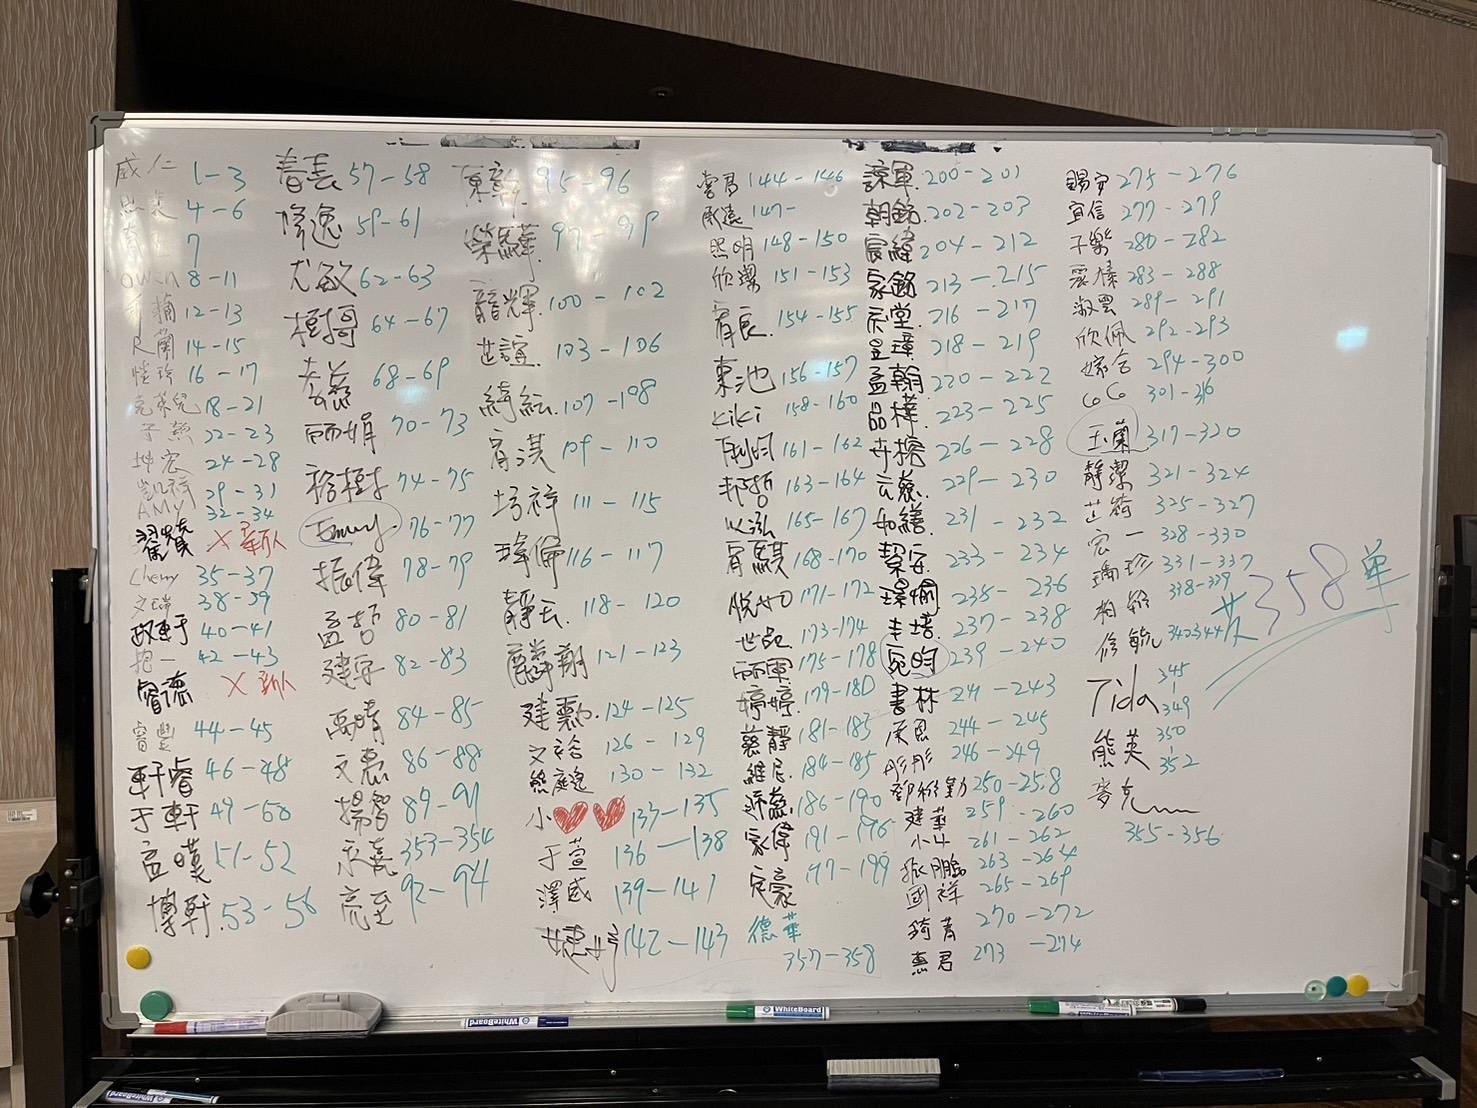 威仁 1-3
4-6
7
owen 8-11
12-13
14-15
16-17
克萊兒 18-21
子慈 22-23
坤宏 24-28
凱祥 29-31
AMy 32-34
X 新人
Cherry 35-37
文瑞 38-39
40-41
抱一 42-43
睿德 X 新人
睿豐 44-45
軒睿 46-48
于軒 49-50
孟璞 51-52
博軒 53-56
春美 57-58
修逸 59-61
尤敏 62-63
樹哥 64-67
68-69
丽娟 70-73
裕樹 74-75
Emmy 76-77
振偉 78-79
孟哲 80-81
建宇 82-83
禹晴 84-85
文惠 86-88
揚智 89-91
永嘉 353-354
亮至 92-94
95-96
榮驊 97-99
龍輝 100-102
芷誼 103-106
綺紜 107-108
宥淇 109-110
培祥 111-115
瑋倫 116-117
靜云 118-120
麟翔 121-123
建勳 124-125
文裕 126-129
熊庭逸 130-132
小❤❤ 133-135
于萱 136-138
澤威 139-141
婕妤 142-143
雲君 144-146
承遠 147-
照明 148-150
欣潔 151-153
宥辰 154-155
東池 156-157
kiki 158-160
161-162
邦哲 163-164
以泓 165-167
宥騏 168-170
171-172
世記 173-174
丽軍 175-178
婷婷 179-180
慈靜 181-183
維尼 184-185
186-190
家偉 191-196
定豪 197-199
德華
357-358
諫軍 200-201
朝銘 202-203
宸緯 204-212
家銘 213-215
216-217
昱璋 218-219
孟翰 220-222
品樺 223-225
卉榕 226-228
云慈 229-230
如繕 231-232
絜安 233-234
環愉 235-236
丰培 237-238
宛昀 239-240
書林 241-243
244-245
彤彤 246-249
250-258
建華 259-260
小山 261-262
振鵬 263-264
國祥 265-269
綺菁 270-272
惠君 273-274
賜安 275-276
宜信 277-279
子樂 280-282
震檳 283-288
淑雲 289-291
欣佩 292-293
嫁合 294-300
GG 301-316
玉蘭 317-320
靜潔 321-324
芷筠 325-327
宏一 328-330
瑀珍 331-337
柏毓 338-339
修毓 340 344
Tida 345-349
熊英 350-352
麥克
355-356
共358單
WhiteBoard
WhiteBoard
WhiteBoard